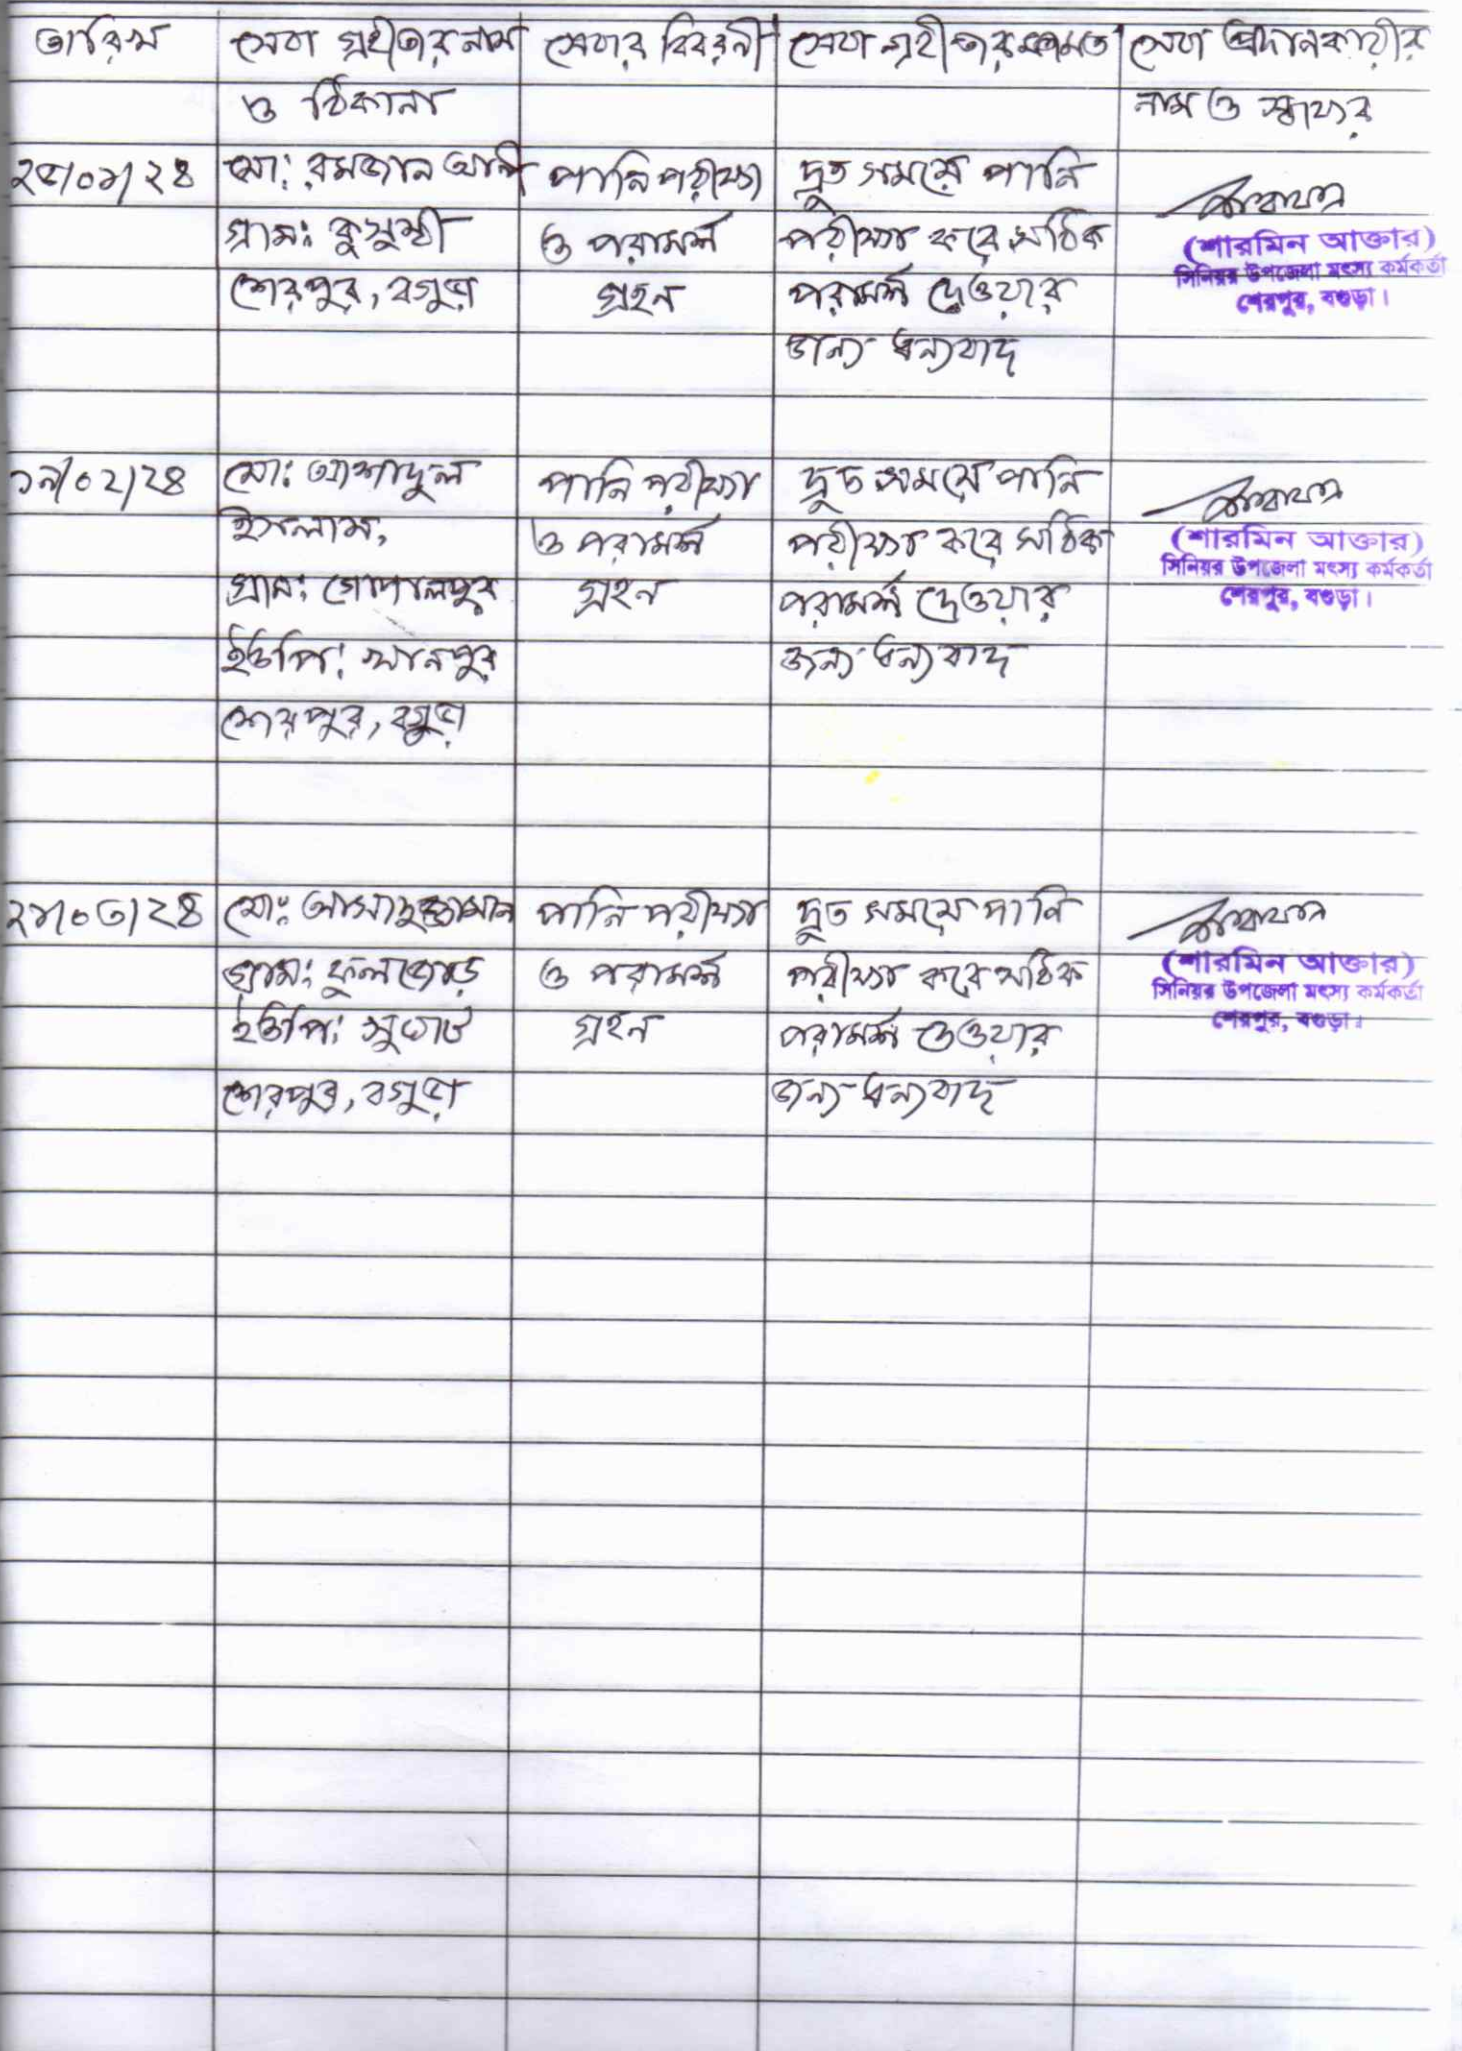 তারিখ
সেবা গ্রহীতার নাম
ও ঠিকানা
সেবার বিবরনী
সেবা গ্রহীতার মতামত
সেবা প্রদানকারীর
নাম ও স্বাক্ষর
২৫/০১/২৪
মো: রমজান আলী
গ্রাম: কুসুম্বী
শেরপুর, বগুড়া
পানি পরীক্ষা
ও পরামর্শ
গ্রহন
দ্রুত সময়ে পানি
পরীক্ষা করে সঠিক
পরামর্শ দেওয়ার
জন্য ধন্যবাদ
(শারমিন আক্তার)
সিনিয়র উপজেলা মৎস্য কর্মকর্তা
শেরপুর, বগুড়া।
১৯/০২/২৪
মো: আশাদুল
ইসলাম,
গ্রাম: গোপালপুর
ইউপি: খানপুর
শেরপুর, বগুড়া
পানি পরীক্ষা
ও পরামর্শ
গ্রহন
দ্রুত সময়ে পানি
পরীক্ষা করে সঠিক
পরামর্শ দেওয়ার
জন্য ধন্যবাদ
(শারমিন আক্তার)
সিনিয়র উপজেলা মৎস্য কর্মকর্তা
শেরপুর, বগুড়া।
মো: আসাদুজ্জামান
গ্রাম: ফুলজোড়
ইউপি: সুঘাট
শেরপুর, বগুড়া
পানি পরীক্ষা
ও পরামর্শ
গ্রহন
দ্রুত সময়ে পানি
পরীক্ষা করে সঠিক
পরামর্শ দেওয়ার
জন্য ধন্যবাদ
(শারমিন আক্তার)
সিনিয়র উপজেলা মৎস্য কর্মকর্তা
শেরপুর, বগুড়া।